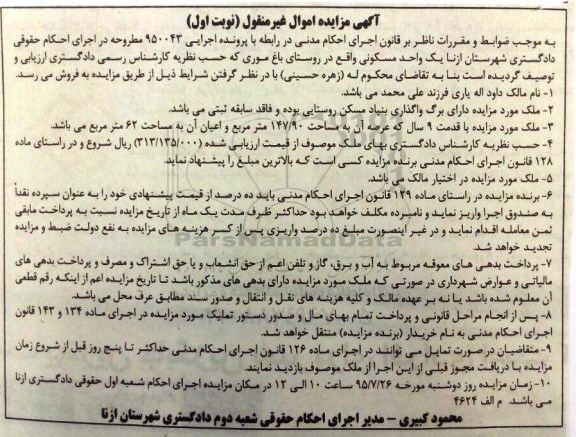 آگهی مزایده اموال غیرمنقول (نوبت اول)
به موجب ضوابط و مقررات ناظر بر قانون اجرای احکام مدنی در رابطه با پرونده اجرایی ۹۵۰۰۴۳ مطروحه در اجرای احکام حقوقی
دادگستری شهرستان ازنا یک واحد مسکونی واقع در روستای باغ موری که حسب نظریه کارشناس رسمی دادگستری ارزیابی و
توصیف گردیده است بنا به تقاضای محکوم له (زهره حسینی) با در نظر گرفتن شرایط ذیل از طریق مزایده به فروش می رسد.
۱- نام مالک داود اله یاری فرزند علی محمد می باشد.
۲- ملک مورد مزایده دارای برگ واگذاری بنیاد مسکن روستایی بوده و فاقد سابقه ثبتی می باشد.
۳- ملک مورد مزایده با قدمت ۹ سال که عرصه آن به مساحت ۱۴۷/۹۰ متر مربع و اعیان آن به مساحت ۶۲ متر مربع می باشد.
۴- حسب نظریه کارشناس دادگستری بهای ملک موصوف از قیمت ارزیابی شده (۳۱۳/۱۳۵/۰۰۰) ریال شروع و در راستای ماده
۱۲۸ قانون اجرای احکام مدنی برنده مزایده کسی است که بالاترین مبلغ را پیشنهاد نماید.
۵- ملک مورد مزایده در اختیار مالک می باشد.
۶- برنده مزایده در راستای ماده ۱۲۹ قانون اجرای احکام مدنی باید ده درصد از قیمت پیشنهادی خود را به عنوان سپرده نقداً
به صندوق اجرا واریز نماید و نامبرده مکلف خواهد بود حداکثر ظرف مدت یک ماه از تاریخ مزایده نسبت به پرداخت مابقی
ثمن معامله اقدام نماید و در غیر اینصورت مبلغ ده درصد واریزی پس از کسر هزینه های مزایده به نفع دولت ضبط و مزایده
تجدید خواهد شد.
۷- پرداخت بدهی های معوقه مربوط به آب و برق، گاز و تلفن اعم از حق انشعاب و یا حق اشتراک و مصرف و پرداخت بدهی های
مالیاتی و عوارض شهرداری در صورتی که ملک مورد مزایده دارای بدهی های مذکور باشد تا تاریخ مزایده اعم از اینکه رقم قطعی
آن معلوم شده باشد یا نه بر عهده مالک و کلیه هزینه های نقل و انتقال و صدور سند مطابق عرف محل می باشد.
۸- پس از انجام مراحل قانونی و پرداخت تمام بهای مال و صدور دستور تملیک مورد مزایده در اجرای ماده ۱۳۴ و ۱۴۳ قانون
اجرای احکام مدنی به نام خریدار (برنده مزایده) منتقل خواهد شد.
۹- متقاضیان در صورت تمایل می توانند در اجرای ماده ۱۲۶ قانون اجرای احکام مدنی حداکثر تا پنج روز قبل از شروع زمان
مزایده با دریافت مجوز قبلی از این اجرا از ملک موصوف بازدید نمایند.
۱۰- زمان مزایده روز دوشنبه مورخه ۹۵/۷/۲۶ ساعت ۱۰ الی ۱۲ در مکان مزایده اجرای احکام شعبه اول حقوقی دادگستری ازنا
می باشد. م الف ۴۶۲۴
محمود کبیری – مدیر اجرای احکام حقوقی شعبه دوم دادگستری شهرستان ازنا
ParsNamadData